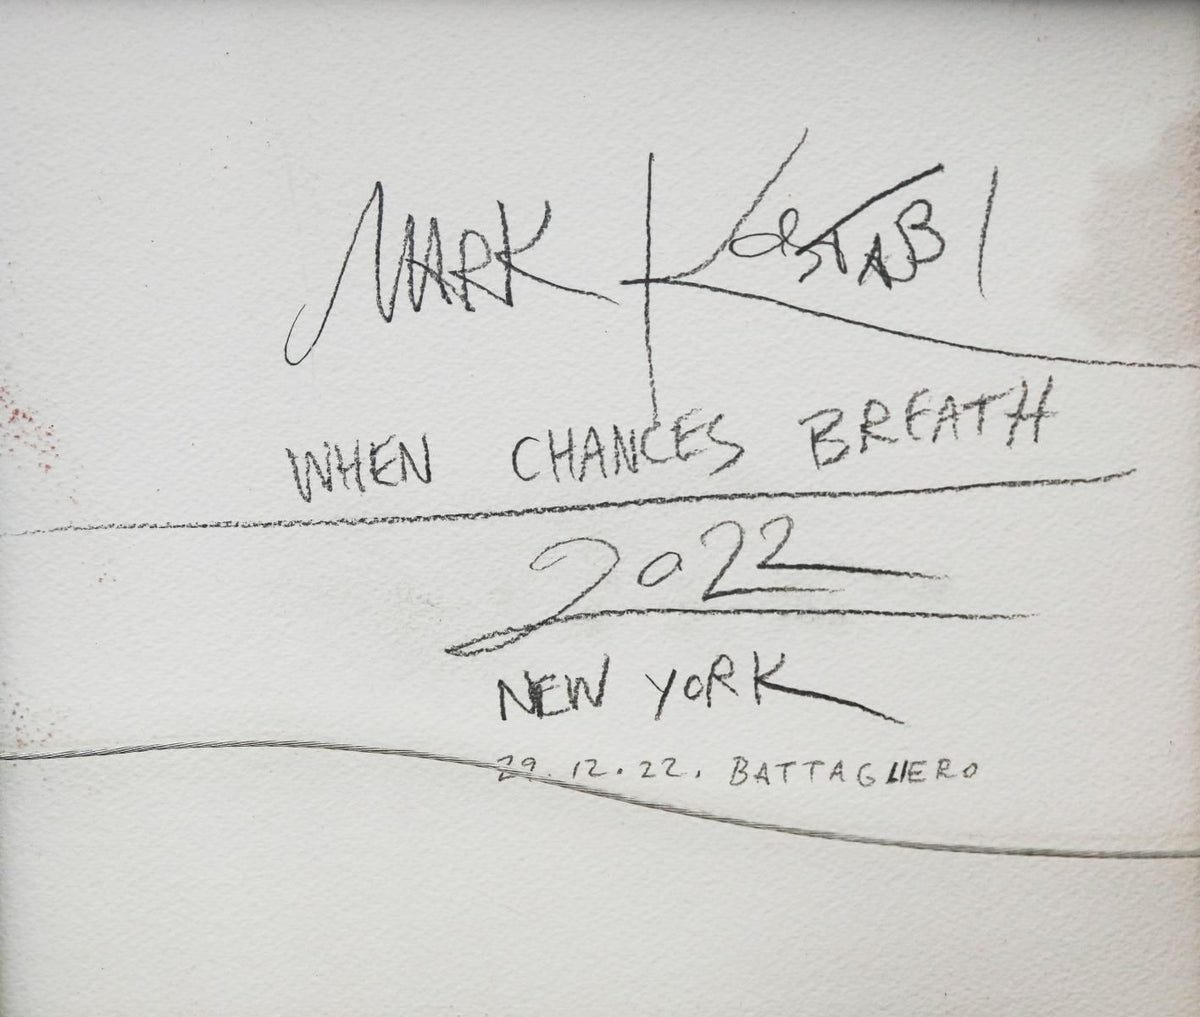 MARK KOSTABI
WHEN CHANCES BREATH
2022
NEW YORK
29.12.22. BATTAGLIERO